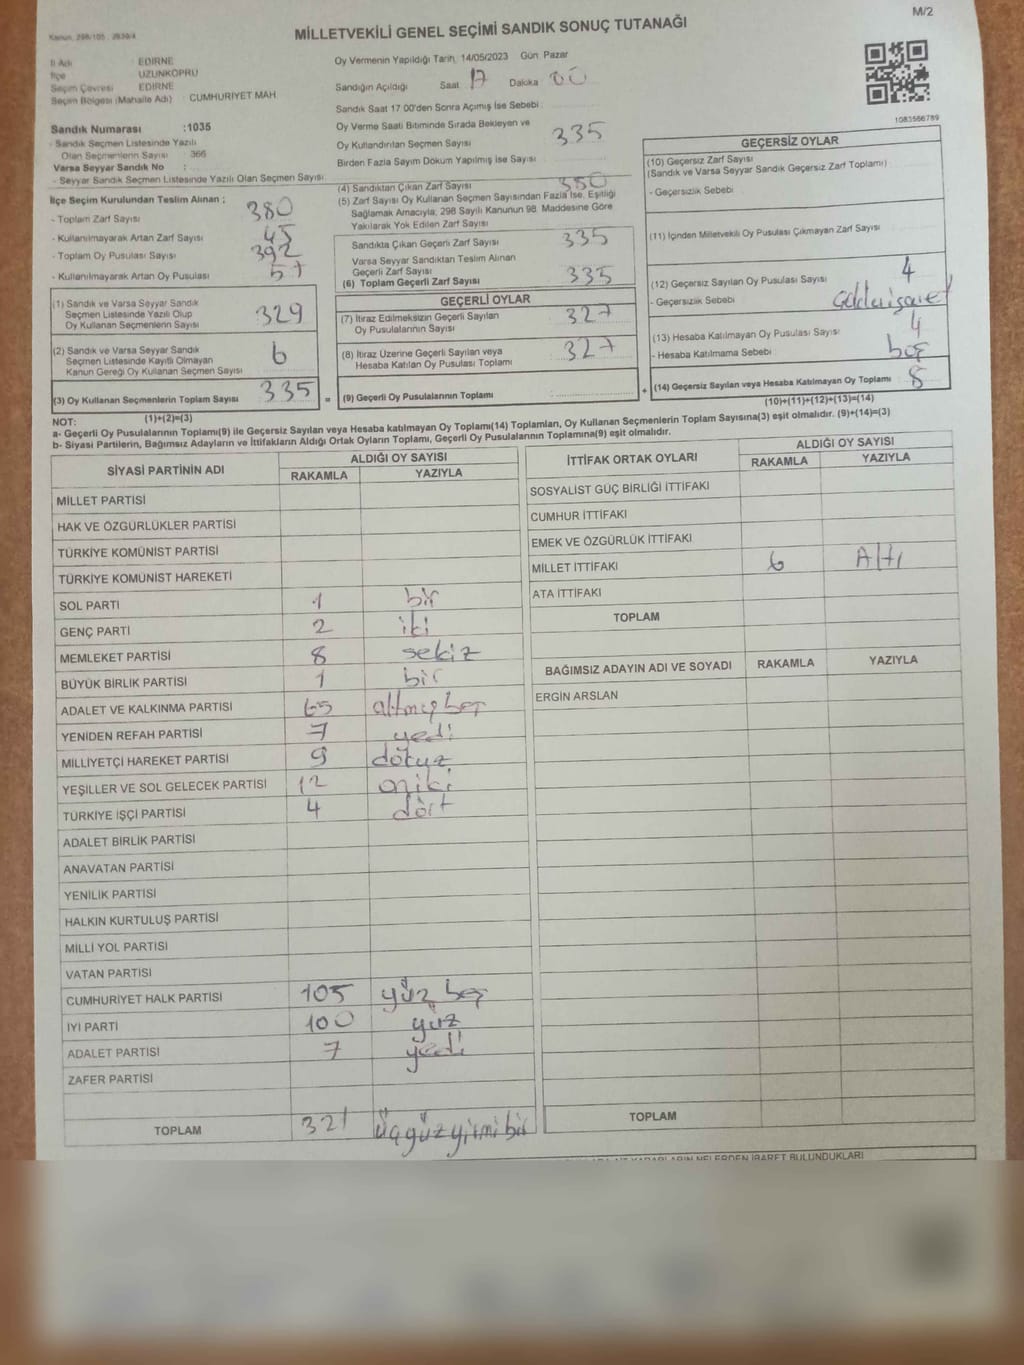 M/2
Kanun: 298/105 2839/4
MİLLETVEKİLİ GENEL SEÇİMİ SANDIK SONUÇ TUTANAĞI
İl Adı : EDIRNE
İlçe UZUNKOPRU
Seçim Çevresi : EDIRNE
Seçim Bölgesi (Mahalle Adı) : CUMHURIYET MAH.
Sandık Numarası :1035
- Sandık Seçmen Listesinde Yazılı
Olan Seçmenlerin Sayısı : 366
Varsa Seyyar Sandık No :
- Seyyar Sandık Seçmen Listesinde Yazılı Olan Seçmen Sayısı:
Oy Vermenin Yapıldığı Tarih: 14/05/2023 Gün: Pazar
Sandığın Açıldığı Saat 17 Dakika 00
Sandık Saat 17.00'den Sonra Açılmış İse Sebebi :
Oy Verme Saati Bitiminde Sırada Bekleyen ve
Oy Kullandırılan Seçmen Sayısı : 335
Birden Fazla Sayım Döküm Yapılmış İse Sayısı
1083566789
İlçe Seçim Kurulundan Teslim Alınan ;
- Toplam Zarf Sayısı : 380
- Kullanılmayarak Artan Zarf Sayısı : 45
- Toplam Oy Pusulası Sayısı : 392
- Kullanılmayarak Artan Oy Pusulası : 57
(1) Sandık ve Varsa Seyyar Sandık
Seçmen Listesinde Yazılı Olup
Oy Kullanan Seçmenlerin Sayısı : 329
(2) Sandık ve Varsa Seyyar Sandık
Seçmen Listesinde Kayıtlı Olmayan
Kanun Gereği Oy Kullanan Seçmen Sayısı : 6
(3) Oy Kullanan Seçmenlerin Toplam Sayısı : 335
(4) Sandıktan Çıkan Zarf Sayısı :
(5) Zarf Sayısı Oy Kullanan Seçmen Sayısından Fazla İse, Eşitliği
Sağlamak Amacıyla, 298 Sayılı Kanunun 98. Maddesine Göre
Yakılarak Yok Edilen Zarf Sayısı :
Sandıkta Çıkan Geçerli Zarf Sayısı : 335
Varsa Seyyar Sandıktan Teslim Alınan
Geçerli Zarf Sayısı
(6) Toplam Geçerli Zarf Sayısı : 335
GEÇERLİ OYLAR
(7) İtiraz Edilmeksizin Geçerli Sayılan
Oy Pusulalarının Sayısı : 327
(8) İtiraz Üzerine Geçerli Sayılan veya
Hesaba Katılan Oy Pusulası Toplamı : 327
(9) Geçerli Oy Pusulalarının Toplamı :
GEÇERSİZ OYLAR
(10) Geçersiz Zarf Sayısı
(Sandık ve Varsa Seyyar Sandık Geçersiz Zarf Toplamı) :
- Geçersizlik Sebebi :
(11) İçinden Milletvekili Oy Pusulası Çıkmayan Zarf Sayısı :
(12) Geçersiz Sayılan Oy Pusulası Sayısı : 4
- Geçersizlik Sebebi :
(13) Hesaba Katılmayan Oy Pusulası Sayısı : 4
- Hesaba Katılmama Sebebi : boş
(14) Geçersiz Sayılan veya Hesaba Katılmayan Oy Toplamı : 8
= +
NOT: (1)+(2)=(3) (10)+(11)+(12)+(13)=(14)
a- Geçerli Oy Pusulalarının Toplamı(9) ile Geçersiz Sayılan veya Hesaba katılmayan Oy Toplamı(14) Toplamları, Oy Kullanan Seçmenlerin Toplam Sayısına(3) eşit olmalıdır. (9)+(14)=(3)
b- Siyasi Partilerin, Bağımsız Adayların ve İttifakların Aldığı Ortak Oyların Toplamı, Geçerli Oy Pusulalarının Toplamına(9) eşit olmalıdır.
SİYASİ PARTİNİN ADI ALDIĞI OY SAYISI
RAKAMLA YAZIYLA
MİLLET PARTİSİ
HAK VE ÖZGÜRLÜKLER PARTİSİ
TÜRKİYE KOMÜNİST PARTİSİ
TÜRKİYE KOMÜNİST HAREKETİ
SOL PARTİ 1 bir
GENÇ PARTİ 2 iki
MEMLEKET PARTİSİ 8 sekiz
BÜYÜK BİRLİK PARTİSİ 1 bir
ADALET VE KALKINMA PARTİSİ 65 altmış beş
YENİDEN REFAH PARTİSİ 7 yedi
MİLLİYETÇİ HAREKET PARTİSİ 9 dokuz
YEŞİLLER VE SOL GELECEK PARTİSİ 12 oniki
TÜRKİYE İŞÇİ PARTİSİ 4 dört
ADALET BİRLİK PARTİSİ
ANAVATAN PARTİSİ
YENİLİK PARTİSİ
HALKIN KURTULUŞ PARTİSİ
MİLLİ YOL PARTİSİ
VATAN PARTİSİ
CUMHURİYET HALK PARTİSİ 105 yüz beş
İYİ PARTİ 100 yüz
ADALET PARTİSİ 7 yedi
ZAFER PARTİSİ
TOPLAM 321 üçyüzyirmibir
İTTİFAK ORTAK OYLARI ALDIĞI OY SAYISI
RAKAMLA YAZIYLA
SOSYALİST GÜÇ BİRLİĞİ İTTİFAKI
CUMHUR İTTİFAKI
EMEK VE ÖZGÜRLÜK İTTİFAKI
MİLLET İTTİFAKI 6 Altı
ATA İTTİFAKI
TOPLAM
BAĞIMSIZ ADAYIN ADI VE SOYADI RAKAMLA YAZIYLA
ERGİN ARSLAN
TOPLAM
NELERDEN İBARET BULUNDUKLARI